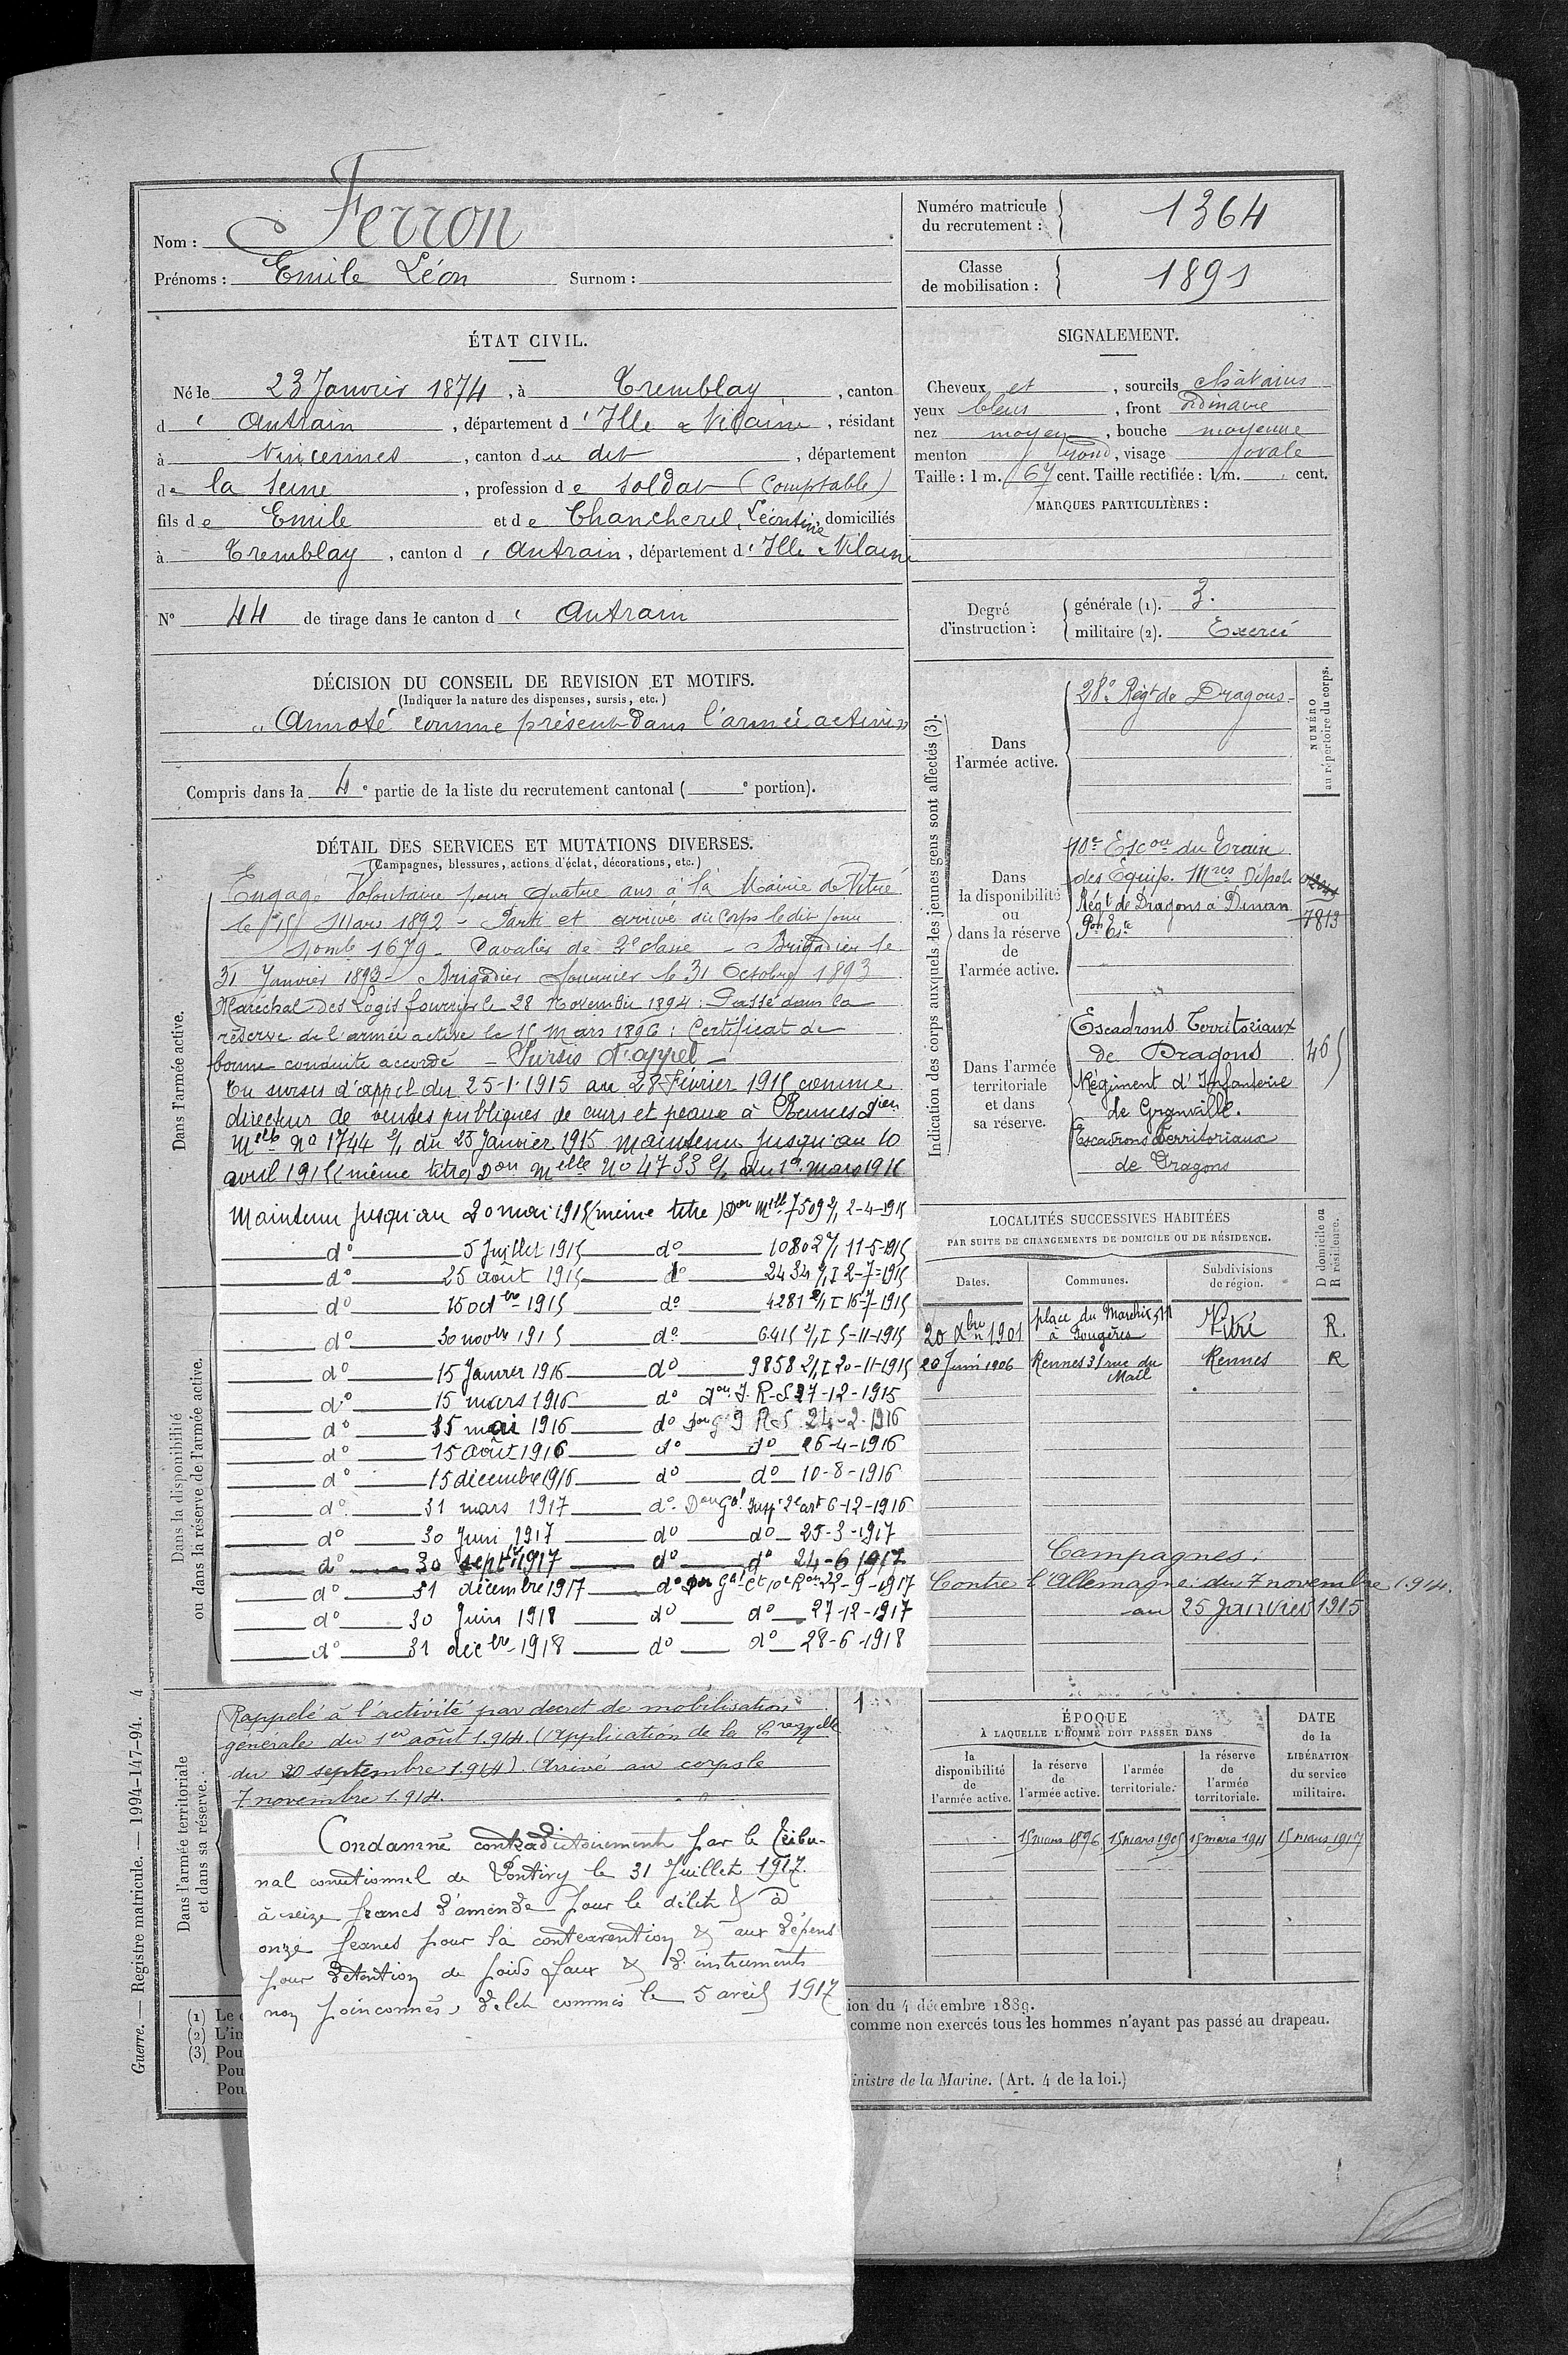 Nom : Ferron
Prénoms : Emile Léon Surnom :
Numéro matricule du recrutement : 1364
Classe de mobilisation : 1891
ÉTAT CIVIL.
Né le 23 Janvier 1874, à Tremblay, canton
d' Antrain, département d'Ille & Vilaine, résidant
à Vincennes, canton du dit, département
de la Seine, profession de soldat (Comptable)
fils de Emile et de Chancherel, Léontine, domiciliés
à Tremblay, canton d'Antrain, département d'Ille & Vilaine
N° 44 de tirage dans le canton d'Antrain
SIGNALEMENT.
Cheveux et, sourcils châtains
yeux bleus, front ordinaire
nez moyen, bouche moyenne
menton rond, visage ovale
Taille : 1 m. 67 cent. Taille rectifiée : 1 m. cent.
MARQUES PARTICULIÈRES :
Degré d'instruction : générale (1). 3.
militaire (2). Exercé
DÉCISION DU CONSEIL DE REVISION ET MOTIFS.
(Indiquer la nature des dispenses, sursis, etc.)
"Annoté comme présent dans l'armée active"
Compris dans la 4e partie de la liste du recrutement cantonal ( e portion).
DÉTAIL DES SERVICES ET MUTATIONS DIVERSES.
(Campagnes, blessures, actions d'éclat, décorations, etc.)
Dans l'armée active.
Engagé Volontaire pour quatre ans à la Mairie de Vitré
le 15 Mars 1892 - Parti et arrivé au Corps le dit jour
1679 - Cavalier de 2e classe - Brigadier le
31 Janvier 1893 - Brigadier fourrier le 31 Octobre 1893
Maréchal des Logis fourrier le 28 Novembre 1894 : Passé dans la
réserve de l'armée active le 15 Mars 1896 : Certificat de
bonne conduite accordé - Sursis d'appel -
En sursis d'appel du 25-1-1915 au 28 Février 1915 comme
directeur de ventes publiques de cuirs et peaux à Rennes Don
Melle No 1744 2/1 du 25 Janvier 1915 Maintenu jusqu'au 10
avril 1915 (même titre) Don Melle No 4733 2/1 du 1er mars 1915
Maintenu jusqu'au 20 mai 1915 (même titre) Don Mlle 7509 2/1 2-4-1915
do 5 Juillet 1915 do 10802 2/1 11-5-1915
do 25 août 1915 do 2434 2/1 I 2-7-1915
do 15 octbre 1915 do 4281 2/1 I 16-7-1915
do 30 novbre 1915 do 6415 2/1 I 5-11-1915
do 15 Janvier 1916 do 9858 2/1 I 20-11-1915
do 15 mars 1916 do Don J. R-S 27-12-1915
do 15 mai 1916 do R-S 24-2-1916
do 15 août 1916 do do 26-4-1916
do 15 décembre 1916 do do 10-8-1916
do 31 mars 1917 do Don Gal Insp 2e art 6-12-1916
do 30 Juin 1917 do do 25-3-1917
do 30 sept 1917 do do 24-6 1917
do 31 décembre 1917 do Don Gal Ct 10e Ron 22-9-1917
do 30 Juin 1918 do do 27-12-1917
do 31 décbre 1918 do do 28-6-1918
Dans la disponibilité ou dans la réserve de l'armée active.
Dans l'armée territoriale et dans sa réserve.
Rappelé à l'activité par décret de mobilisation
générale du 1er août 1.914. (Application de la Cre
du 20 septembre 1.914). Arrivé au corps le
7 novembre 1.914.
Condamné contradictoirement par le Tribu-
nal correctionnel de Pontivy le 31 Juillet 1917.
à seize francs d'amende pour le délit & à
onze francs pour la contravention & aux dépens
pour détention de poids faux & d'instruments
non poinçonnés, délit commis le 5 avril 1917
Indication des corps auxquels les jeunes gens sont affectés (3).
NUMÉRO au répertoire du corps.
Dans l'armée active.
28e Régt de Dragons
Dans la disponibilité ou dans la réserve de l'armée active.
10e Escon du Train
des Equip. Mres Dépôt
Régt de Dragons à Dinan
7813
Dans l'armée territoriale et dans sa réserve.
Escadrons Territoriaux
de Dragons 465
Régiment d'Infanterie
de Granville.
Escadrons Territoriaux
de Dragons
LOCALITÉS SUCCESSIVES HABITÉES
PAR SUITE DE CHANGEMENTS DE DOMICILE OU DE RÉSIDENCE.
Dates. Communes. Subdivisions de région. D domicile ou R résidence.
20 Xbre 1901 place du Marchix, 11 à Fougères Vitré R.
20 Juin 1906 Rennes 31 rue du Mail Rennes R
Campagnes :
Contre l'Allemagne du 7 novembre 1.914.
au 25 Janvier 1915
ÉPOQUE
À LAQUELLE L'HOMME DOIT PASSER DANS
la disponibilité de l'armée active. la réserve de l'armée active. l'armée territoriale. la réserve de l'armée territoriale.
DATE de la LIBÉRATION du service militaire.
15 mars 1896 15 mars 1905 15 mars 1911 15 mars 1917
(1) Le
(2) L'in
(3) Pou
Pou
Pou
ion du 4 décembre 1889.
comme non exercés tous les hommes n'ayant pas passé au drapeau.
inistre de la Marine. (Art. 4 de la loi.)
Guerre. — Registre matricule. — 1994-147-94. 4